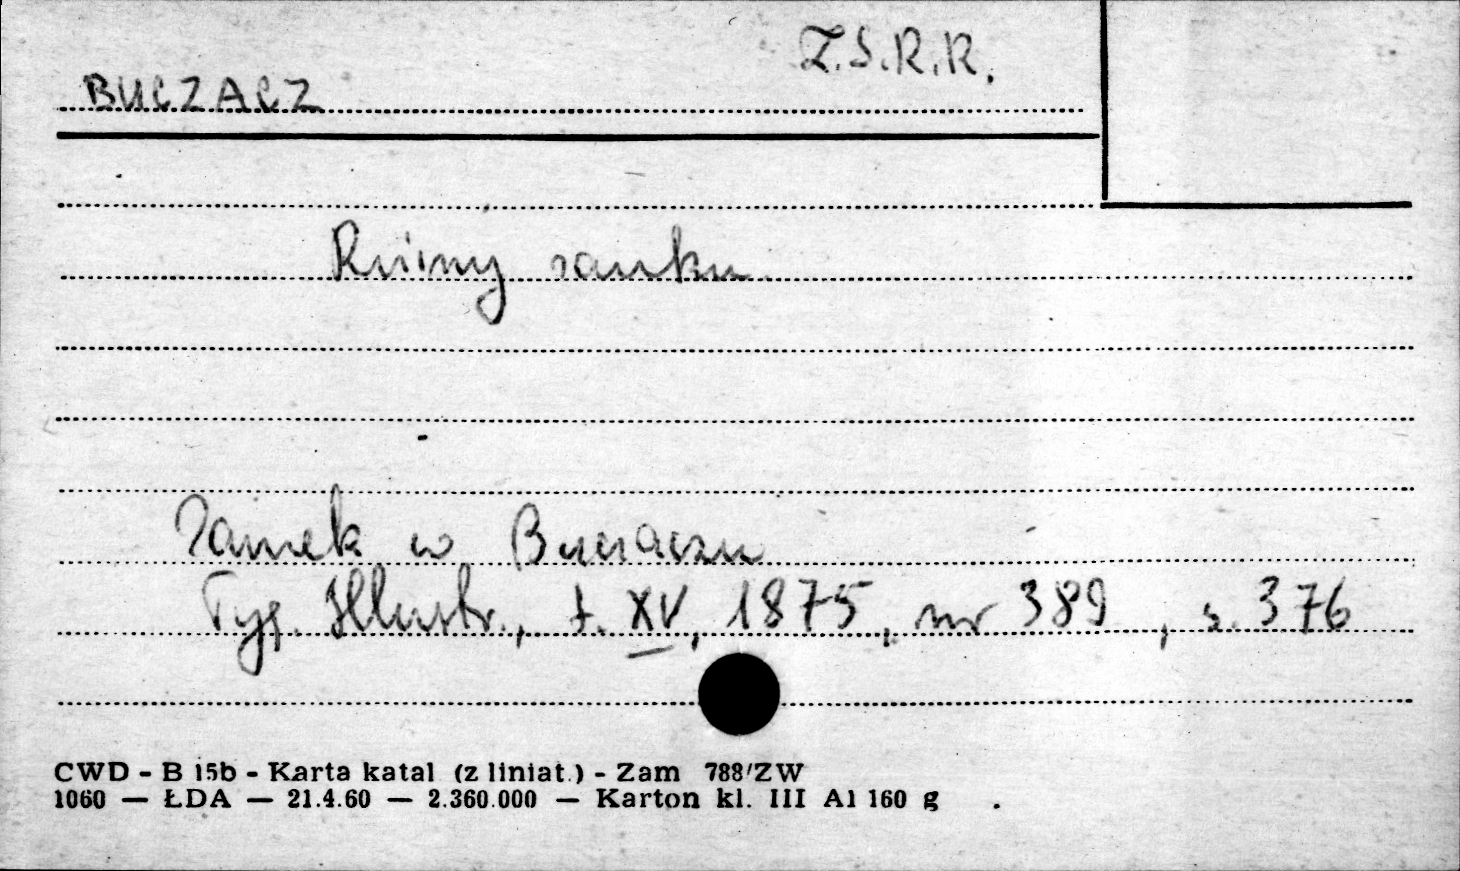 Z.S.R.R.
BUCZACZ
Ruiny zamku
Zamek w Buczaczu
Tyg. Illustr., t. XV, 1875, nr 389, s. 376
CWD - B 15b - Karta katal (z liniat.) - Zam 788/ZW
1060 — ŁDA — 21.4.60 — 2.360.000 — Karton kl. III A1 160 g